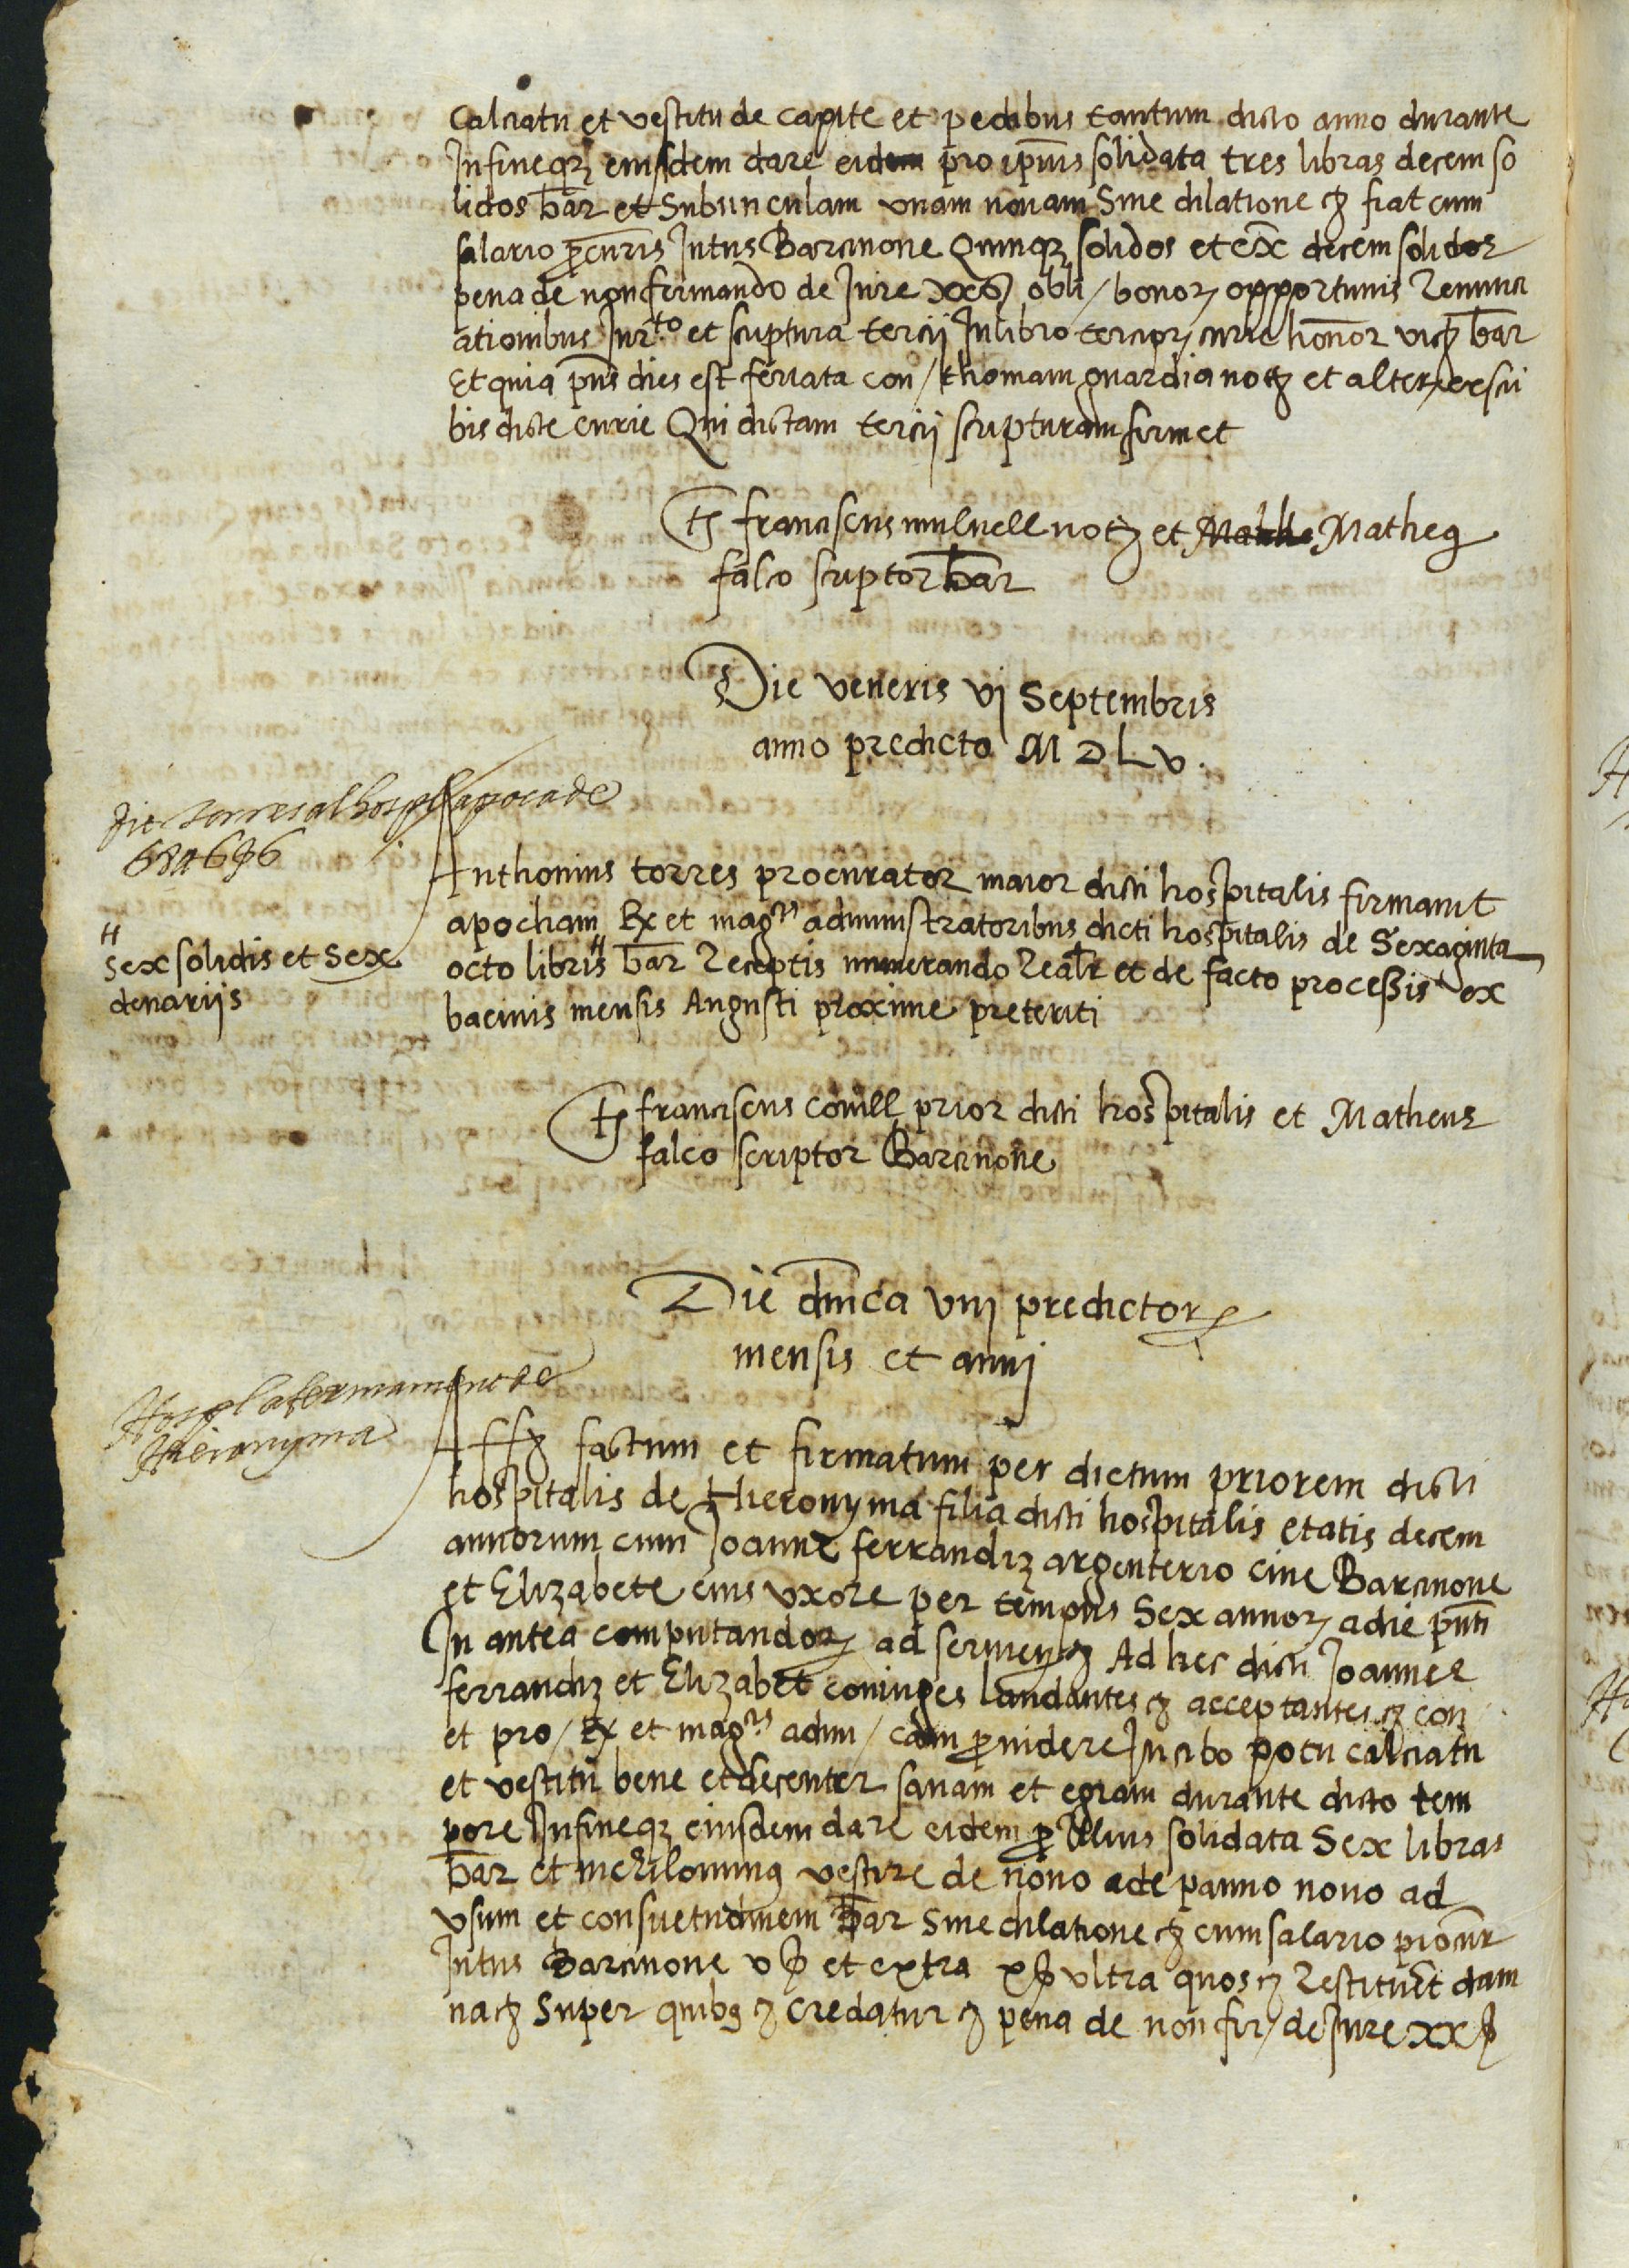 calciatu et vestitu de capite et pedibus tantum dicto anno durante
Infineqz eiusdem dare eidem pro ipius solidata tres libras decem so
lidos bar et Subunculam unam novam Sine dilatione fiat cum
salario procuris Intus Barcinone Quinqz solidos et ex decem solidos
pena de non firmando de Jure xxs obli / bonoz opportunis Renunci
ationibus Jurto et scriptura tercij In libro tercioz curie honor vicz bar
Et quia pns dies est feriata con / thomam guardia not et alter ex scri
bis dicte curie Qui dictam tercij scripturam firmet
Ts franciscus mulnell not et Mathe Matheus
falco scriptor bar
Die veneris vj Septembris
anno predicto M D L v.
torres al hospl apoca de
68 ll 6 s 6
Anthonius torres procurator maior dicti hospitalis firmavit
apocham Rx et magcis administratoribus dicti hospitalis de Sexaginta
H
Sex solidis et Sex
denarijs
octo libris H bar Receptis numerando Realr et de facto processis ex
bacinis mensis Augusti proxime preteriti
Ts franciscus conill prior dicti hospitalis et Matheus
falco scriptor Barcinone
Die dnica viij predictoz
mensis et annj
Hospl afermament de
Hieronyma
Affz factum et firmatum per dictum priorem dicti
hospitalis de Hieronyma filia dicti hospitalis etatis decem
annorum cum Joanne ferrandiz argenterio cive Barcinone
et Elizabete eius uxore per tempus Sex annoz adie pnti
In antea computandoz ad serviendz Ad hec dicti Joannes
ferrandiz et Elizabet coniuges laudantes acceptantes con
et pro / Rx et magcis adm / eam providere In cibo potu calciatu
et vestitu bene et decenter sanam et egram durante dicto tem
pore Infineqz eiusdem dare eidem pro illius solidata Sex libras
bar et nichilominus vestire de novo ade panno novo ad
usum et consuetudinem bar Sine dilatione cum salario procur
Intus Barcinone v s et extra x s ultra quos Restituet dam
na Super quibus credatur pena de non fir / de Jure xx s